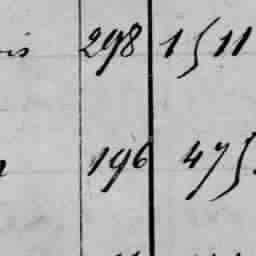 is 298 1511
196 475